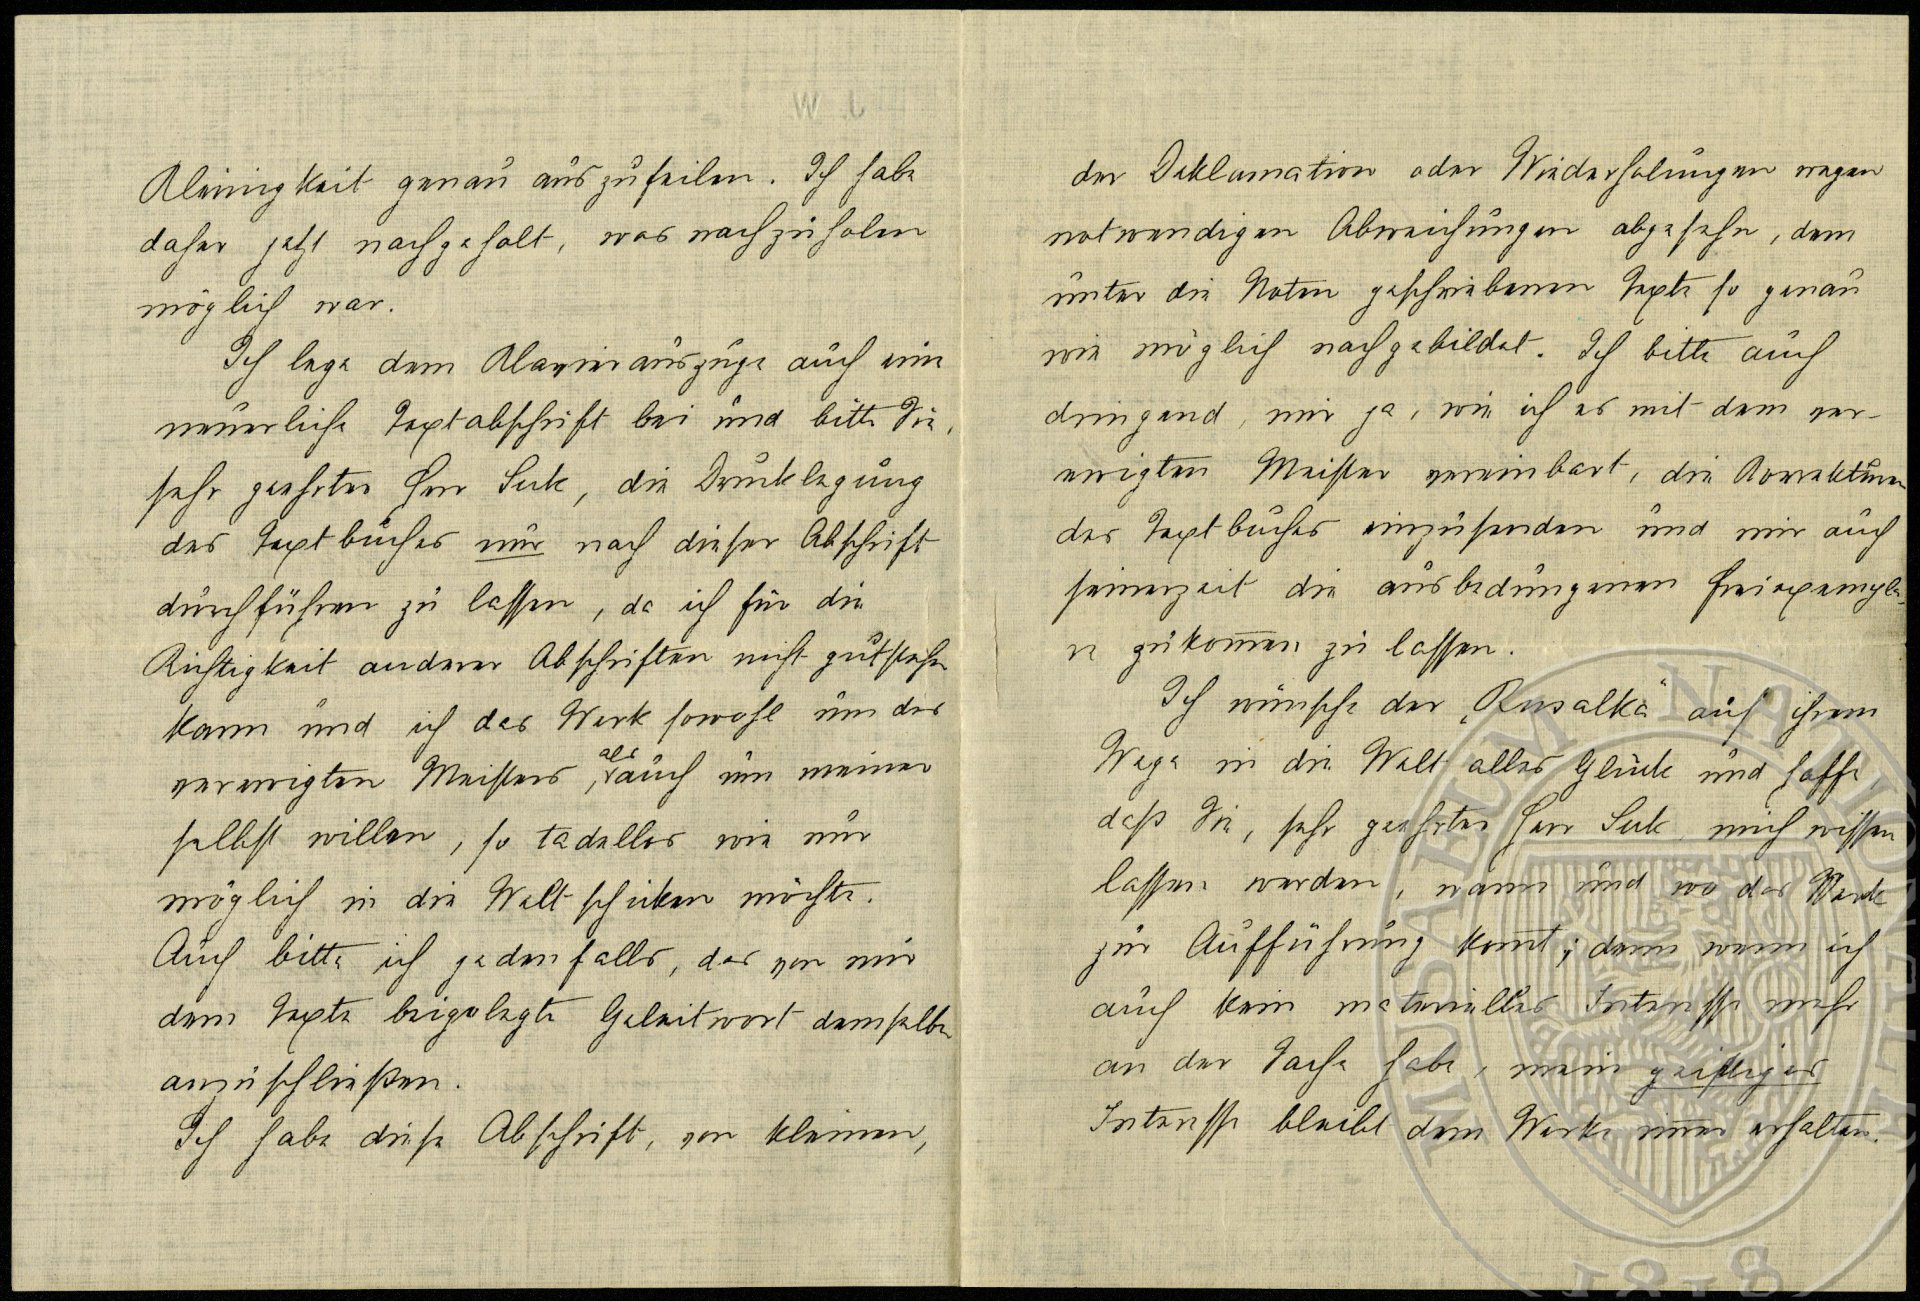 Kleinigkeit genau auszufeilen. Ich habe
daher jetzt nachgeholt, was nachzuholen
möglich war.
Ich lege dem Klavierauszuge auch eine
neuerliche Textabschrift bei und bitte Sie,
sehr geehrter Herr Suk, die Drucklegung
des Textbuches nur nach dieser Abschrift
durchführen zu lassen, da ich für die
Richtigkeit anderer Abschriften nicht gutstehen
kann und ich das Werk sowohl um des
verewigten Meisters, als auch um meiner
selbst willen, so tadellos wie nur
möglich in die Welt schicken möchte.
Auch bitte ich jedenfalls, das von mir
dem Texte beigelegte Geleitwort demselben
anzuschließen.
Ich habe diese Abschrift, von kleinen,
der Deklamation oder Wiederholungen wegen
notwendigen Abweichungen abgesehn, dem
unter die Noten geschriebenen Texte so genau
wie möglich nachgebildet. Ich bitte auch
dringend, mir ja, wie ich es mit dem ver-
ewigten Meister vereinbart, die Korrekturen
des Textbuches einzusenden und mir auch
seinerzeit die ausbedungenen Freiexempla-
re zukom̅en zu lassen.
Ich wünsche der „Rusalka“ auf ihrem
Wege in die Welt alles Glück und hoffe,
daß Sie, sehr geehrter Herr Suk, mich wissen
lassen werden, wann und wo das Werk
zur Aufführung kom̅t; denn wenn ich
auch kein materielles Interesse mehr
an der Sache habe, mein geistiges
Interesse bleibt dem Werke im̅er erhalten.
MUSAEUM NATIONALE
1818
J. W.